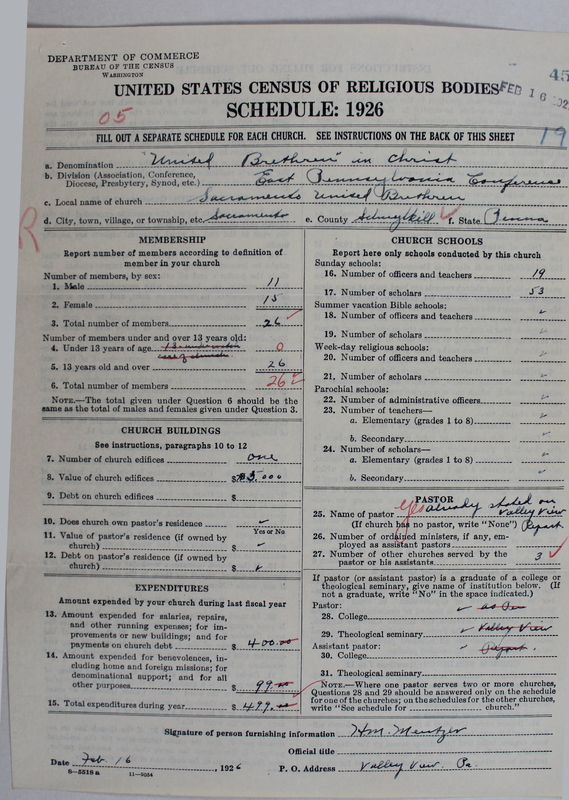 DEPARTMENT OF COMMERCE
BUREAU OF THE CENSUS
WASHINGTON
45
FEB 16 192
UNITED STATES CENSUS OF RELIGIOUS BODIES
SCHEDULE: 1926
05
FILL OUT A SEPARATE SCHEDULE FOR EACH CHURCH. SEE INSTRUCTIONS ON THE BACK OF THIS SHEET
19
a. Denomination "United Brethren" in Christ
b. Division (Association, Conference, Diocese, Presbytery, Synod, etc.) East Pennsylvania Conference
c. Local name of church Sacramento United Brethren
d. City, town, village, or township, etc. Sacramento e. County Schuylkill f. State Penna
R
MEMBERSHIP
Report number of members according to definition of member in your church
Number of members, by sex:
1. Male 11
2. Female 15
3. Total number of members 26
Number of members under and over 13 years old:
4. Under 13 years of age 0
5. 13 years old and over 26
6. Total number of members 26
NOTE.—The total given under Question 6 should be the same as the total of males and females given under Question 3.
CHURCH BUILDINGS
See instructions, paragraphs 10 to 12
7. Number of church edifices one
8. Value of church edifices $ 5.000
9. Debt on church edifices $
10. Does church own pastor's residence
Yes or No
11. Value of pastor's residence (if owned by church) $
12. Debt on pastor's residence (if owned by church) $
EXPENDITURES
Amount expended by your church during last fiscal year
13. Amount expended for salaries, repairs, and other running expenses; for improvements or new buildings; and for payments on church debt $ 400.00
14. Amount expended for benevolences, including home and foreign missions; for denominational support; and for all other purposes $ 99.00
15. Total expenditures during year $ 499.00
CHURCH SCHOOLS
Report here only schools conducted by this church
Sunday schools:
16. Number of officers and teachers 19
17. Number of scholars 53
Summer vacation Bible schools:
18. Number of officers and teachers
19. Number of scholars
Week-day religious schools:
20. Number of officers and teachers
21. Number of scholars
Parochial schools:
22. Number of administrative officers
23. Number of teachers—
a. Elementary (grades 1 to 8)
b. Secondary
24. Number of scholars—
a. Elementary (grades 1 to 8)
b. Secondary
PASTOR
yes already stated on
25. Name of pastor Valley View
(If church has no pastor, write "None") Report
26. Number of ordained ministers, if any, employed as assistant pastors
27. Number of other churches served by the pastor or his assistants 3
If pastor (or assistant pastor) is a graduate of a college or theological seminary, give name of institution below. (If not a graduate, write "No" in the space indicated.)
Pastor:
28. College as on
29. Theological seminary Valley View
Assistant pastor:
30. College Report
31. Theological seminary
NOTE.—Where one pastor serves two or more churches, Questions 28 and 29 should be answered only on the schedule for one of the churches; on the schedules for the other churches, write "See schedule for church."
Signature of person furnishing information HM. Mentzer
Official title
Date Feb. 16, 1926 P. O. Address Valley View Pa.
8—5518 a 11—9054